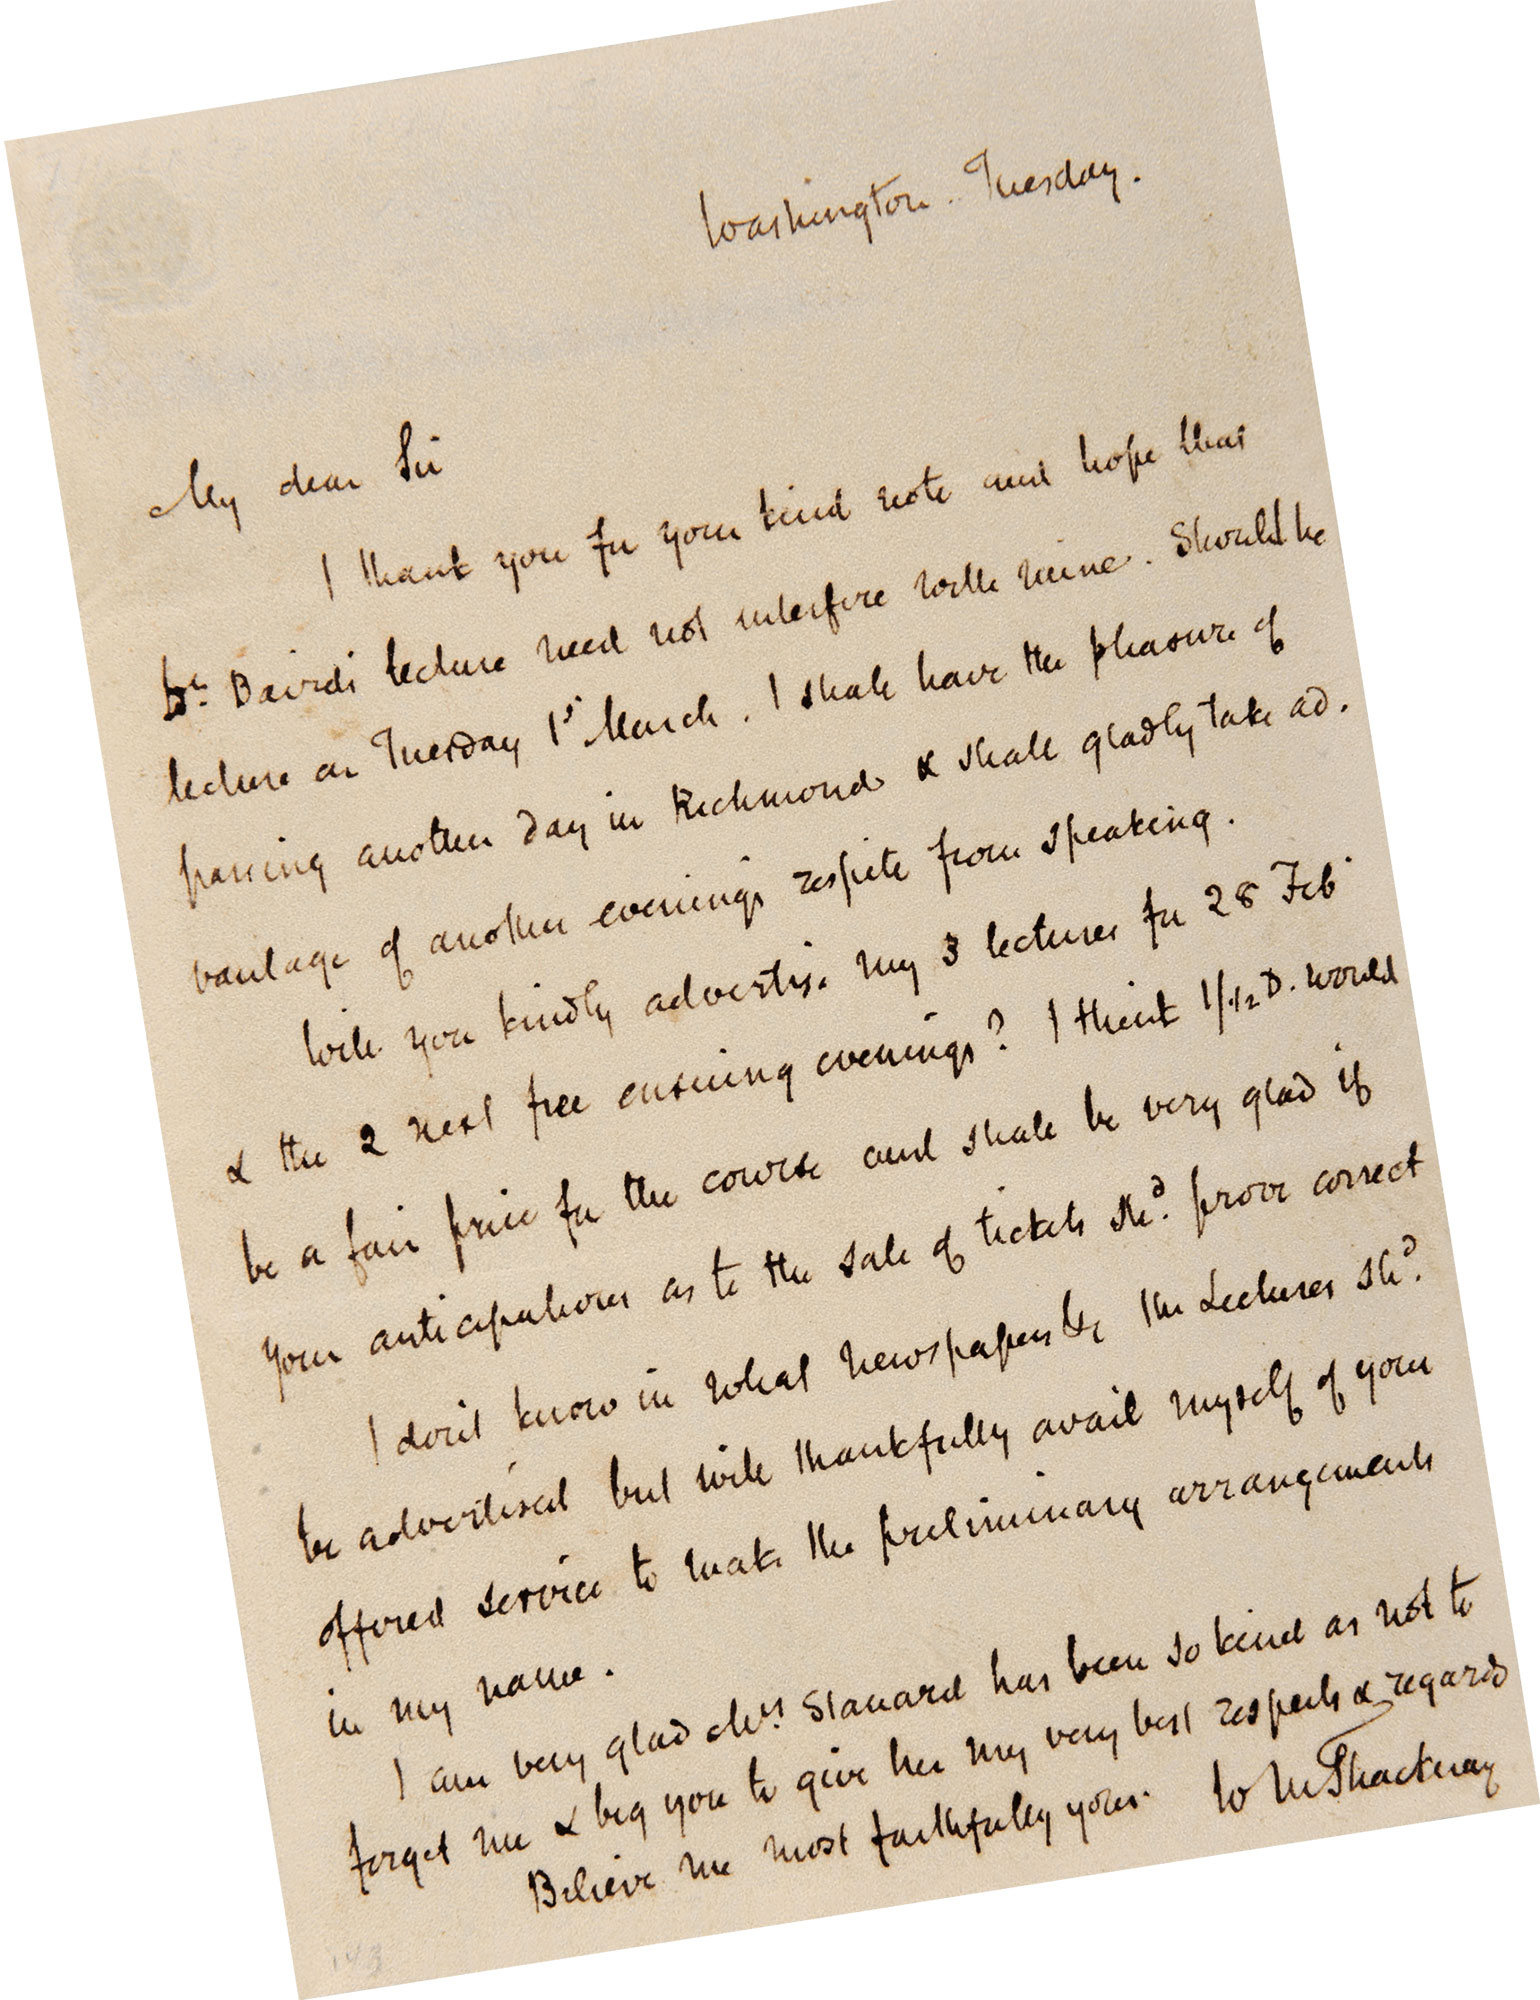 Washington. Tuesday.
My dear Sir
I thank you for your kind note and hope that
Dr. Bairds lecture need not interfere with mine. Should he
lecture on Tuesday 1st March. I shall have the pleasure of
passing another day in Richmond & shall gladly take ad.
vantage of another evenings respite from speaking.
Will you kindly advertise my 3 lectures for 28 Feb
& the 2 next free ensuing evenings? I think 1/1/2 D. would
be a fair price for the course and shall be very glad if
your anticipations as to the sale of tickets shd. prove correct
I don't know in what newspapers &c the Lectures shd.
be advertised but will thankfully avail myself of your
offered service to make the preliminary arrangements
in my name.
I am very glad Mrs. Stanard has been so kind as not to
forget me & beg you to give her my very best respects & regards
Believe me most faithfully yours. W M Thackeray
143